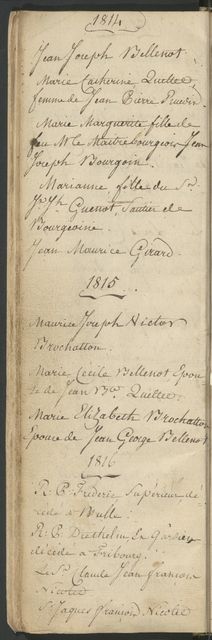 1814
Jean Joseph Bellenot.
Marie Catherine Quellet
femme de Jean Pierre
Marie Marguerite fille de
feu Mr le Maitrebourgeois Jean
Joseph Bourgoin.
Marianne, fille du Sr.
Jh. Guenot, Sautier de
Bourgeoisie.
Jean Maurice Girard.
1815
Maurice Joseph Victor
Brochatton.
Marie Cecile Bellenot Epou
se de Jean Bte Quellet.
Marie Elizabeth Brochatton
Epouse de Jean George Bellenot
1816
R. P. Frederic Supérieur dé-
cédé à
R. P. Diethelm le Gardien
décédé à Fribourg.
Le Sr Claude Jean françois
Nicolet
Sr Jaques françois Nicolet